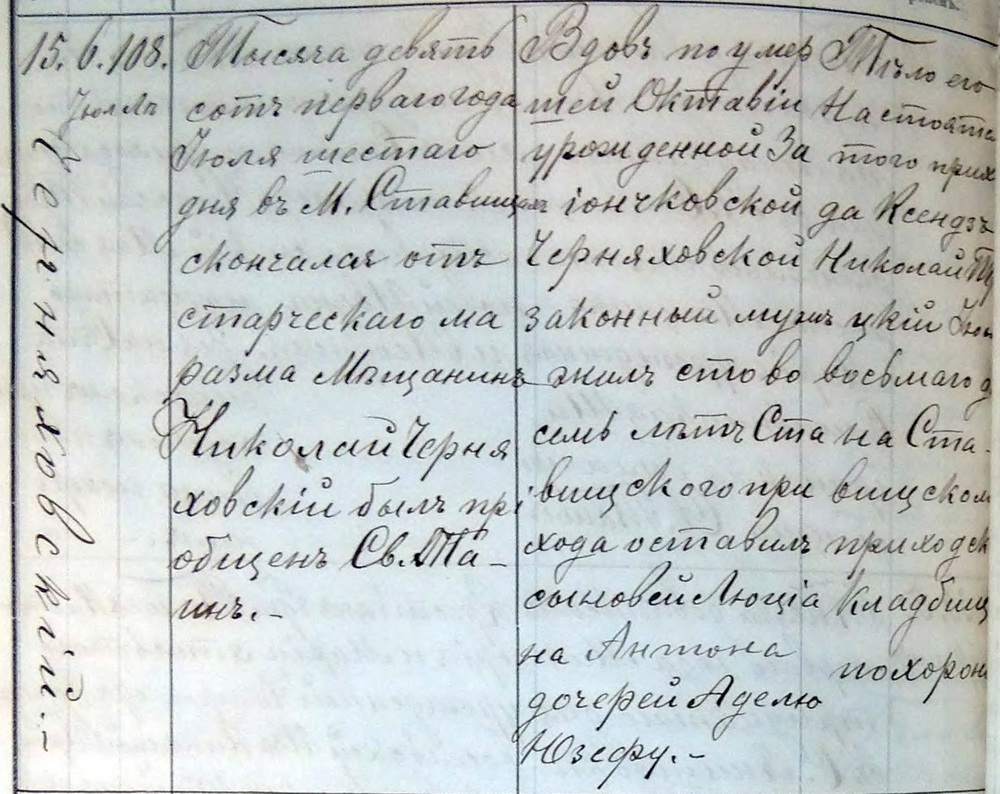 15. 6. 108.
Июля
Черняховский. –
Тысяча девять
сотъ перваго года
Іюля шестаго
дня въ М. Ставищахъ
скончался отъ
старческаго ма
разма Мѣщанинъ
Николай Черня
ховскій былъ прі
общенъ Св. Та –
инъ. –
Вдовъ по умер
шей Октавіи
урожденной За
іончковской
Черняховской
законный мужъ
жилъ сто во
семь лѣтъ Ста
вищского при
хода оставилъ
сыновей Люціа
на Антона
дочерей Аделю
Юзефу. –
Тѣло его
Настояте
того прих
да Ксендзъ
Николай
цкій Іюл
восьмаго д
на Ста –
вищском
приходск
кладбищ
похорон